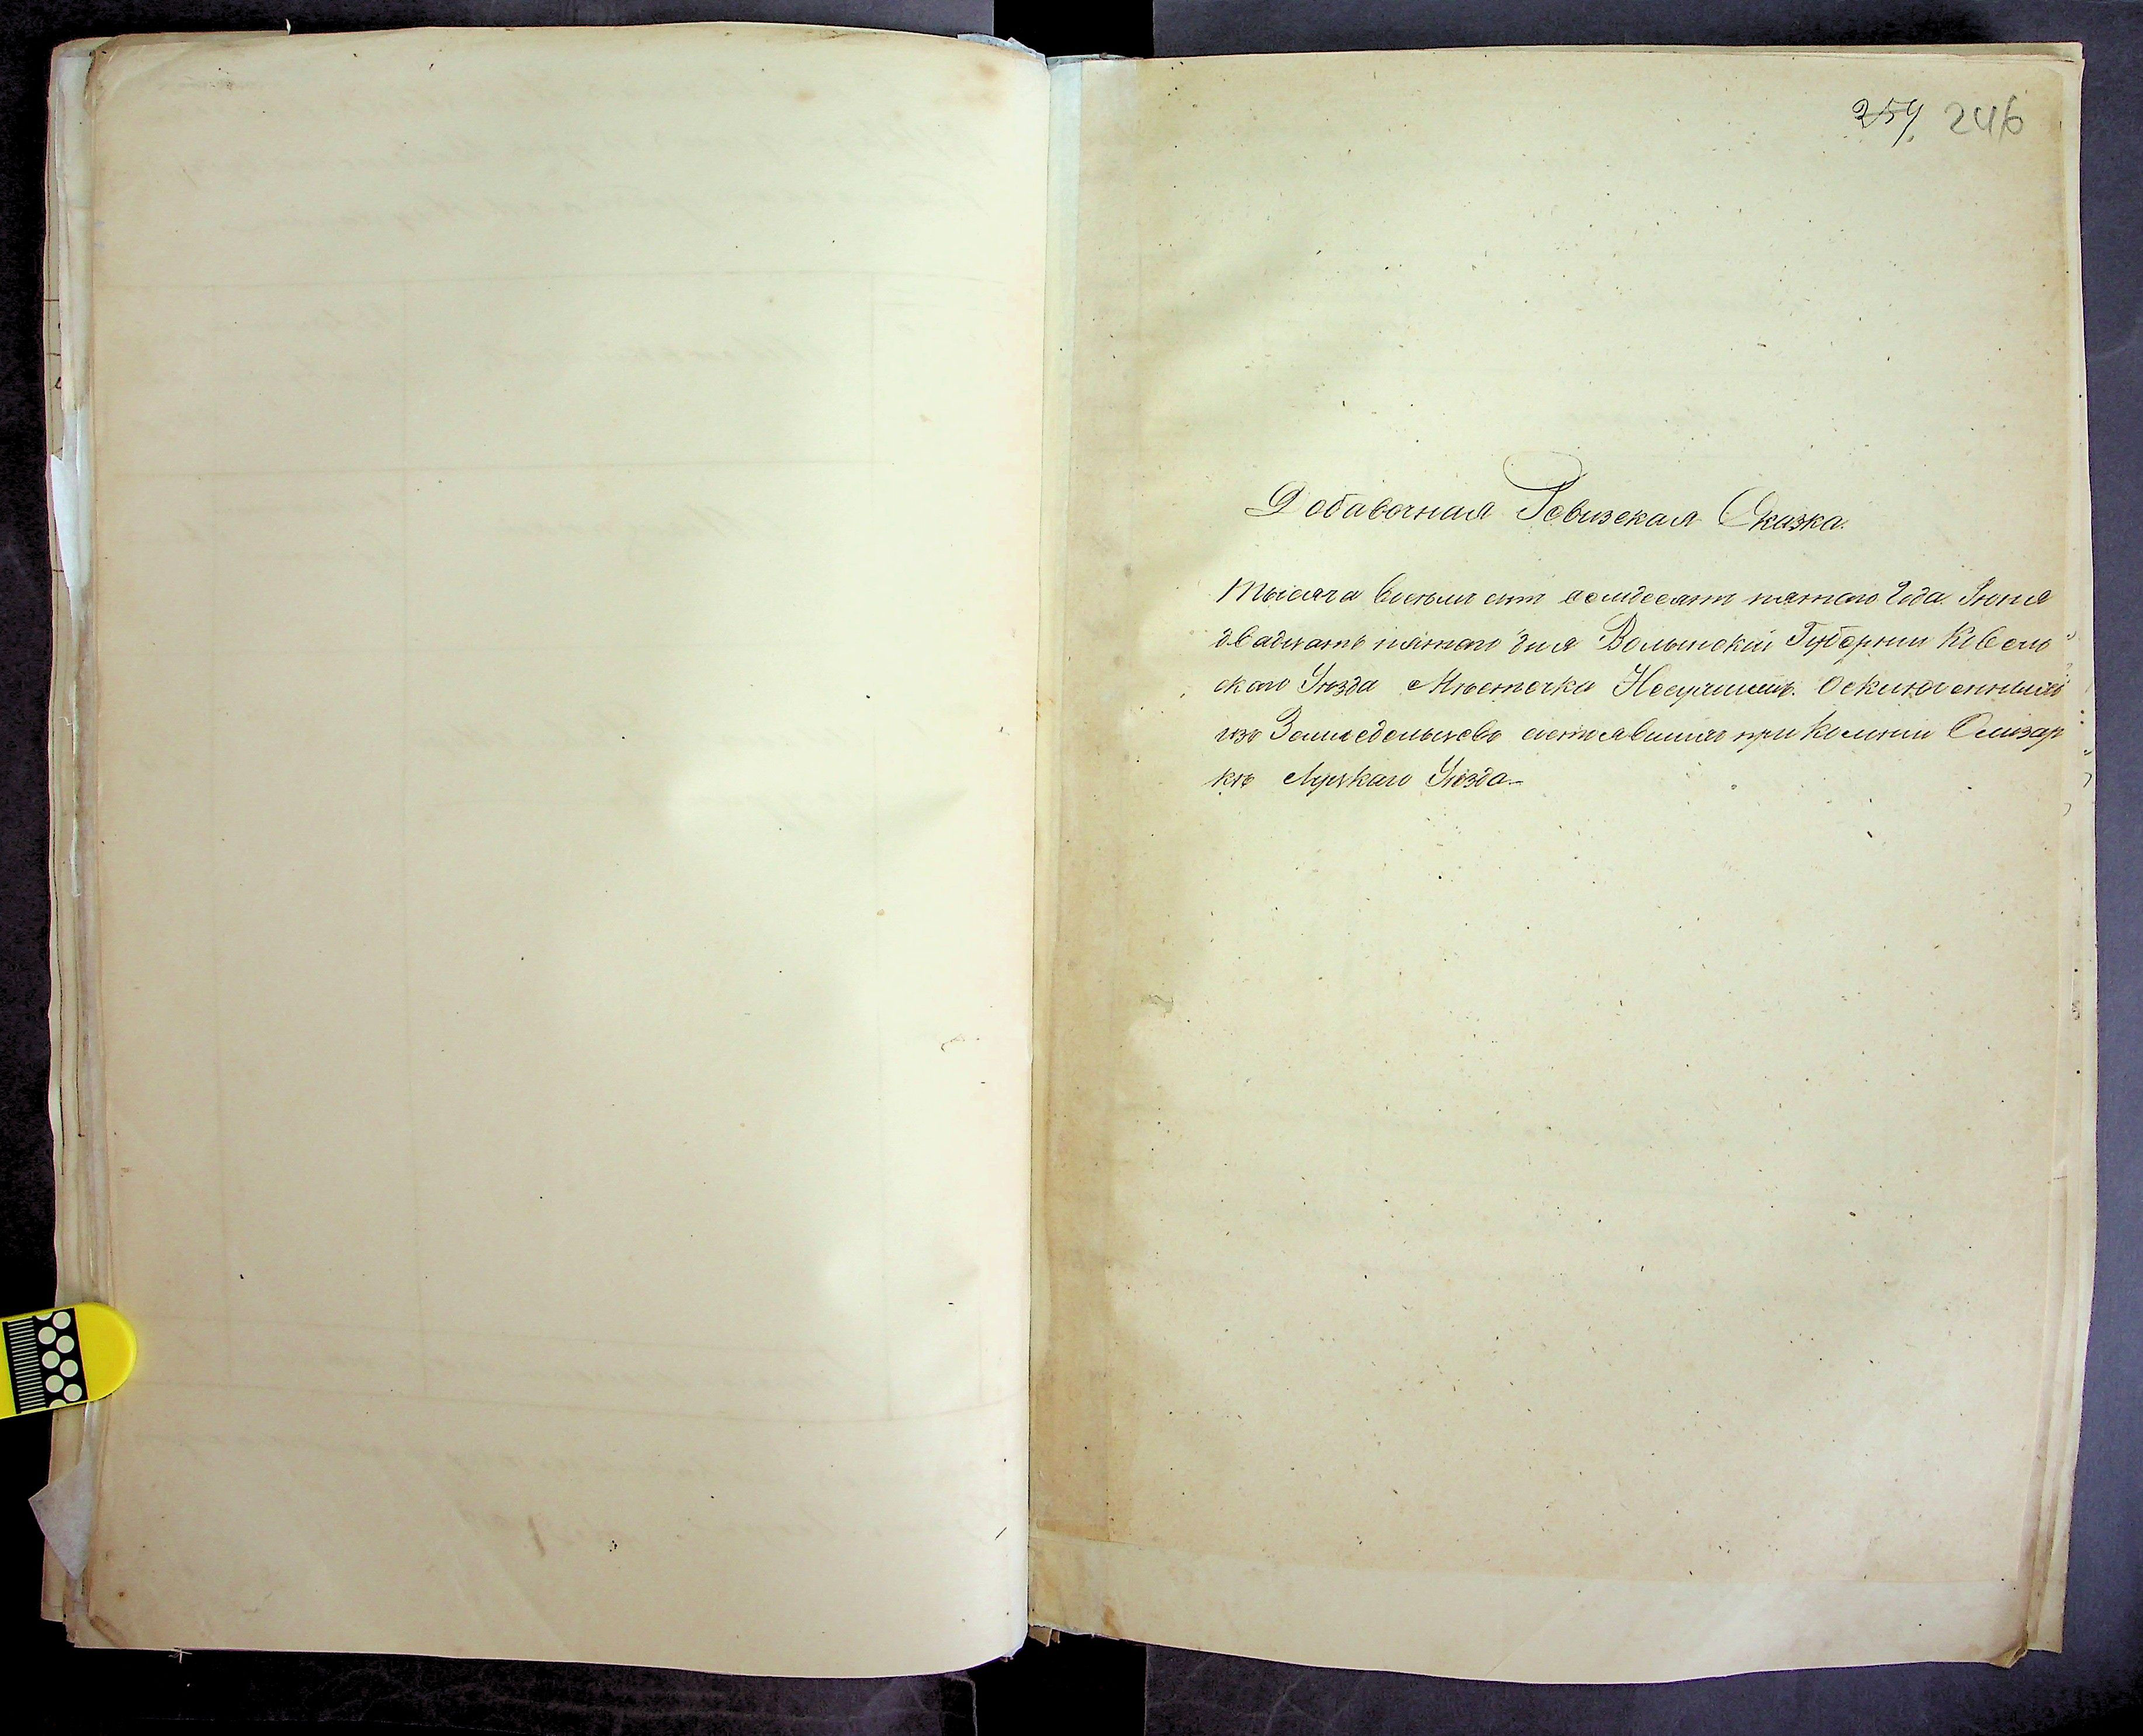 259 246
Добавочная Ревизская Сказка.
Тысяча восемь сот семдесят пятаго Года Июня
двадцать пятаго дня Волынской Губерніи Ковель
скаго Уезда Мѣстечка Несухоижъ.
изъ Земледельцевъ при Колонии Олизар
кѣ Луцкаго Уѣзда